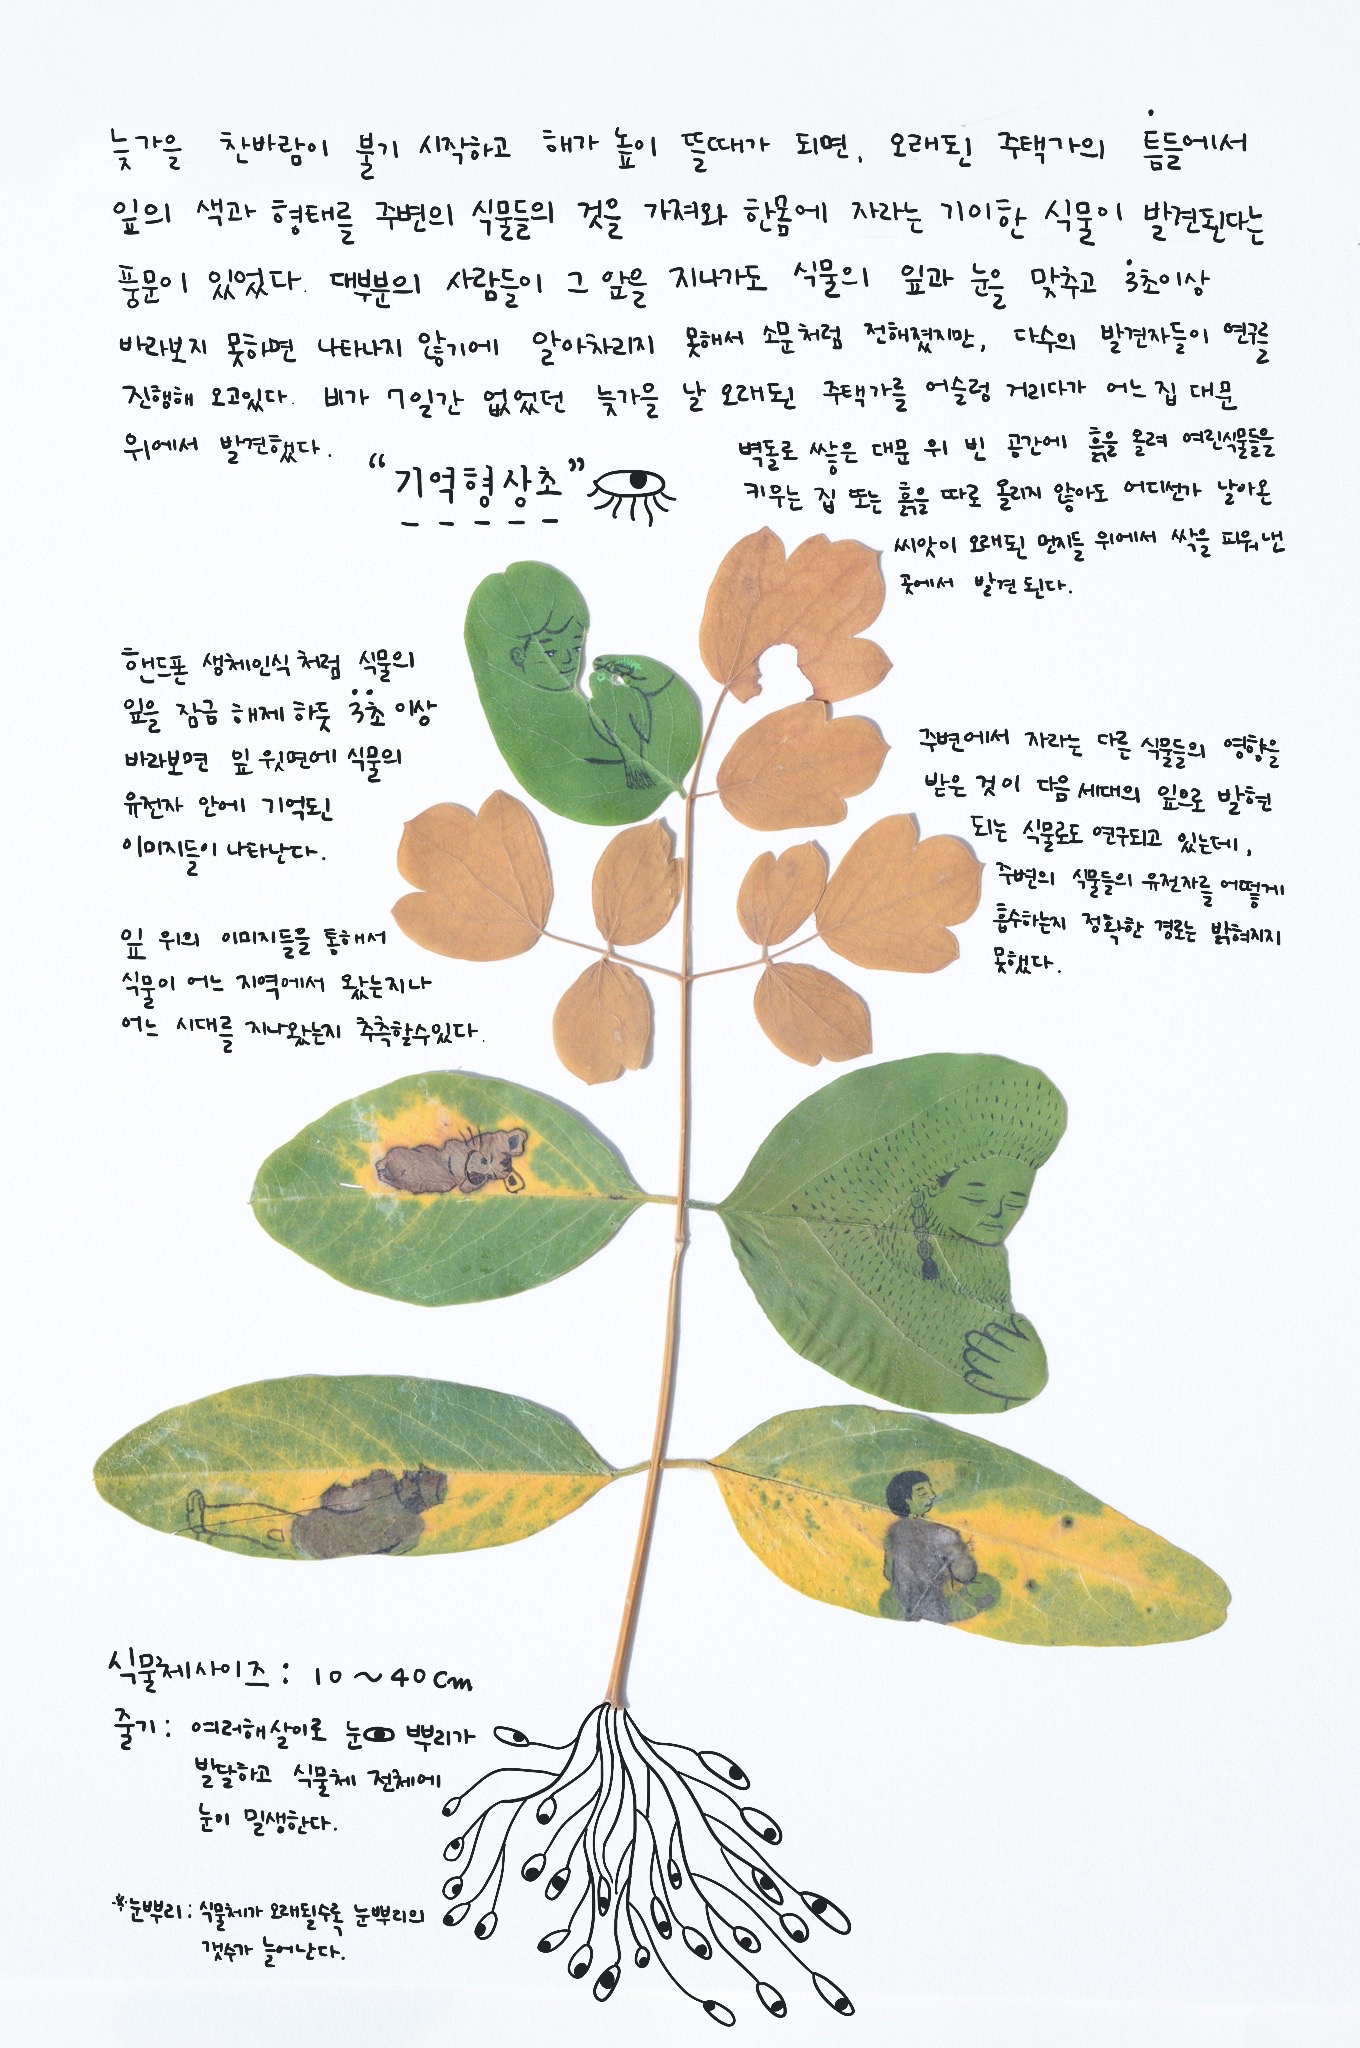 늦가을 찬바람이 불기 시작하고 해가 높이 뜰때가 되면, 오래된 주택가의 틈들에서
잎의 색과 형태를 주변의 식물들의 것을 가져와 한몸에 자라는 기이한 식물이 발견된다는
풍문이 있었다. 대부분의 사람들이 그 앞을 지나가도 식물의 잎과 눈을 맞추고 3초이상
바라보지 못하면 나타나지 않기에 알아차리지 못해서 소문처럼 전해졌지만, 다수의 발견자들이 연구를
진행해 오고있다. 비가 7일간 없었던 늦가을 날 오래된 주택가를 어슬렁 거리다가 어느 집 대문
위에서 발견했다.
"기억형상초"
벽돌로 쌓은 대문 위 빈 공간에 흙을 올려 여린식물들을
키우는 집 또는 흙을 따로 올리지 않아도 어디선가 날아온
씨앗이 오래된 먼지들 위에서 싹을 피워낸
곳에서 발견된다.
핸드폰 생체인식처럼 식물의
잎을 잠금 해제 하듯 3초 이상
바라보면 잎 윗면에 식물의
유전자 안에 기억된
이미지들이 나타난다.
주변에서 자라는 다른 식물들의 영향을
받은 것이 다음 세대의 잎으로 발현
되는 식물로도 연구되고 있는데,
주변의 식물들의 유전자를 어떻게
흡수하는지 정확한 경로는 밝혀지지
못했다.
잎 위의 이미지들을 통해서
식물이 어느 지역에서 왔는지나
어느 시대를 지나왔는지 추측할수있다.
식물체사이즈 : 10~40cm
줄기 : 여러해살이로 눈 뿌리가
발달하고 식물체 전체에
눈이 밀생한다.
*눈뿌리 : 식물체가 오래될수록 눈뿌리의
갯수가 늘어난다.